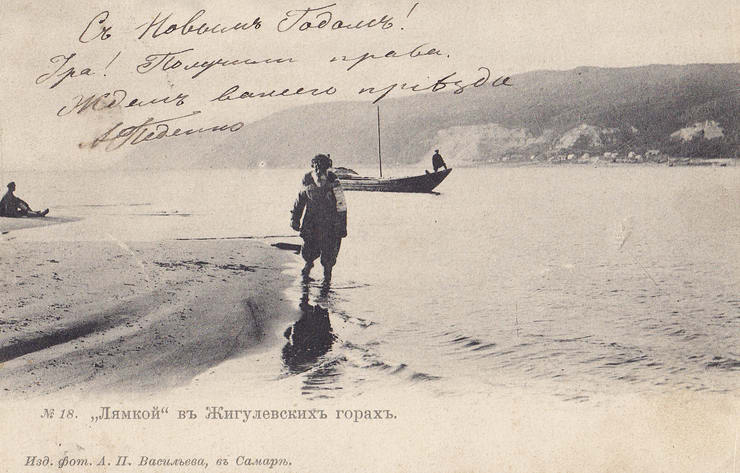 Съ Новымъ Годомъ!
Ура! Получили права.
Ждемъ вашего пріѣзда
№ 18. „Лямкой“ въ Жигулевскихъ горахъ.
Изд. фот. А. П. Васильева, въ Самарѣ.